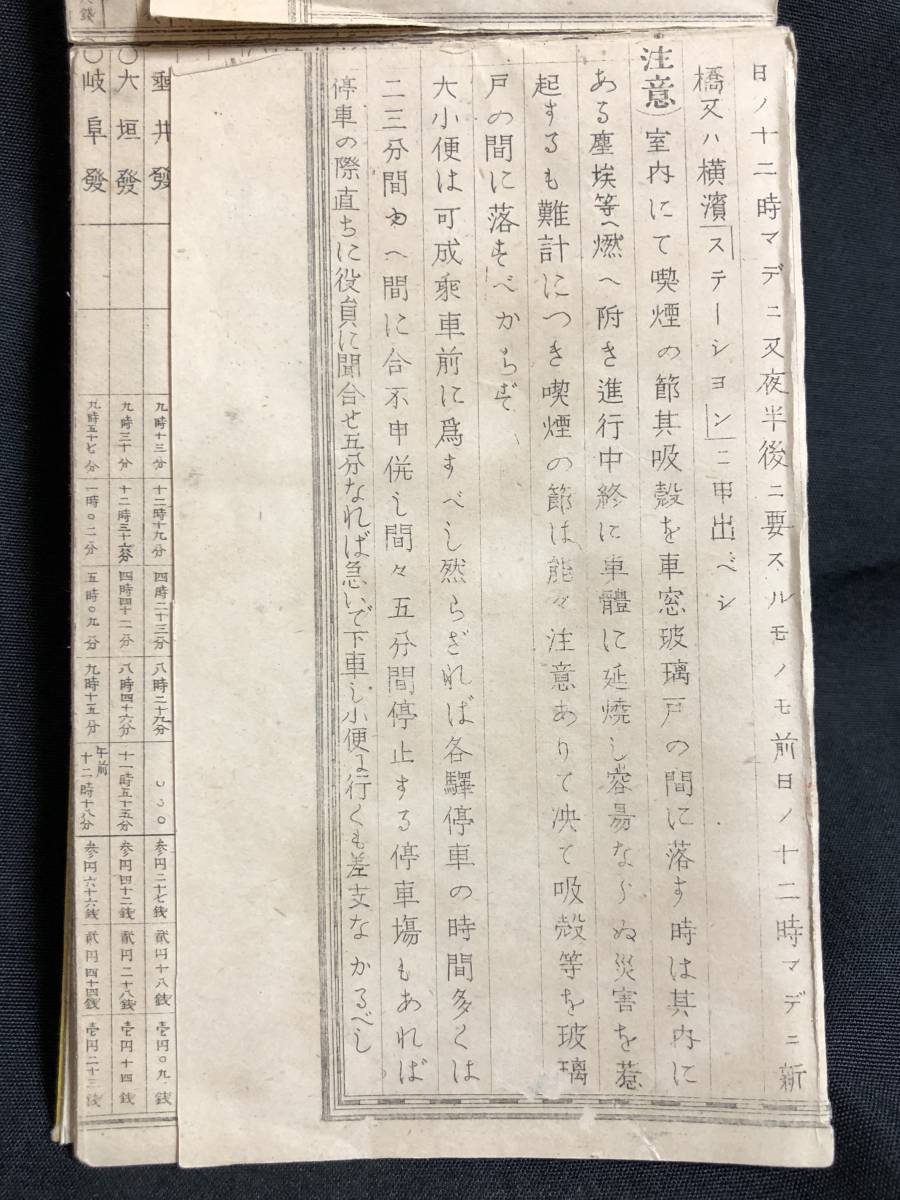 日ノ十二時マデニ又夜半後ニ要スルモノモ前日ノ十二時マデニ新
橋又ハ横濱「ステーシヨン」ニ申出ベシ
(注意)室内にて喫煙の節其吸殻を車窓玻璃戸の間に落す時は其内に
ある塵埃等へ燃へ附き進行中終に車體に延焼し容易ならぬ災害を惹
起するも難計につき喫煙の節は能々注意ありて决て吸殻等を玻璃
戸の間に落すべからず
大小便は可成乘車前に爲すべし然らざれば各驛停車の時間多くは
二三分間ゆへ間に合不申併し間々五分間停止する停車塲もあれば
停車の際直ちに役員に聞合せ五分なれば急いで下車し小便に行くも差支なかるべし
垂井發 九時十三分 十二時十九分 四時二十三分 八時二十九分 〃〃〃 参円二十七銭 貳円十八銭 壱円〇九銭
〇大垣發 九時三十分 十二時三十六分 四時四十一分 八時四十六分 十一時五十五分 参円四十二銭 貳円二十八銭 壱円十四銭
〇岐阜發 九時五十七分 一時〇二分 五時〇九分 九時十五分 午前十二時十八分 参円六十六銭 貳円四十四銭 壱円二十三銭